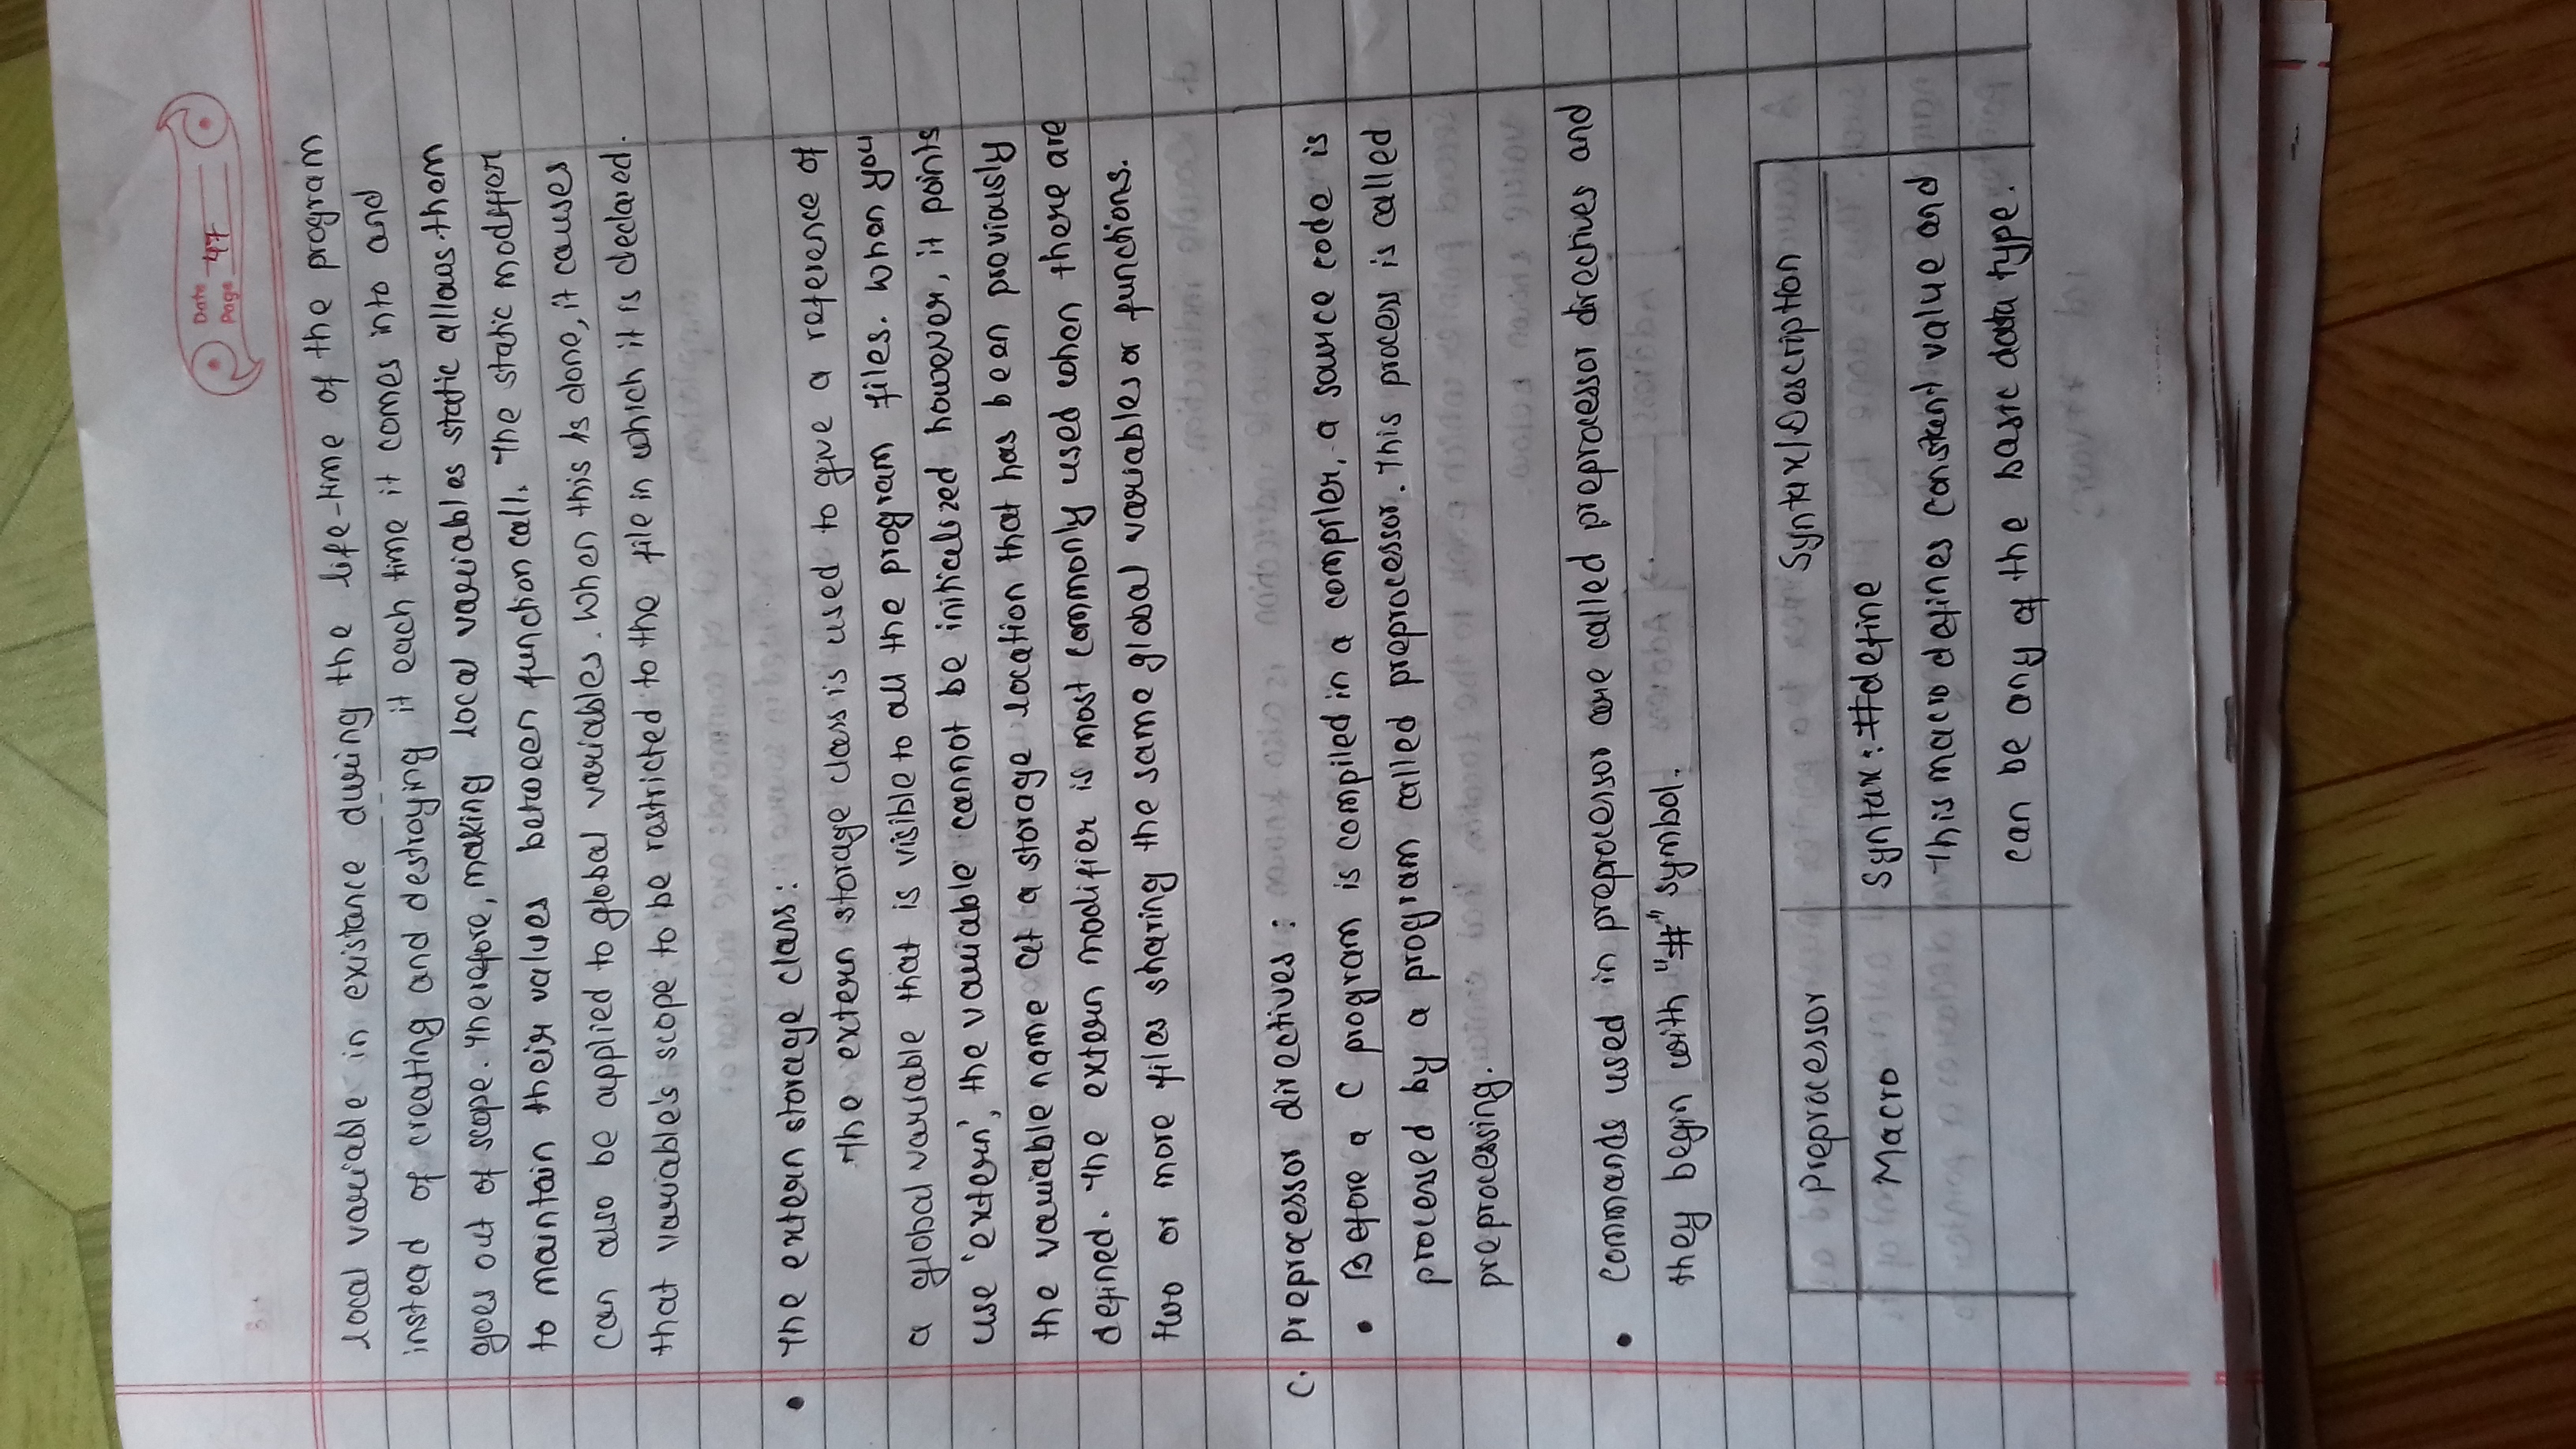 Date
Page 47
local variable in existance during the life-time of the program
instead of creating and destroying it each time it comes into and
goes out of scope. Therefore, making local variables static allows them
to maintain their values between function call. The static modifier
can also be applied to global variables. When this is done, it causes
that variable's scope to be restricted to the file in which it is declared.
• The extern storage class:
The extern storage class is used to give a reference of
a global variable that is visible to all the program files. When you
use 'extern', the variable cannot be initialized however, it points
the variable name at a storage location that has been previously
defined. The extern modifier is most commonly used when there are
two or more files sharing the same global variables or functions.
C. Preprocessor directives:
• Before a C program is compiled in a compiler, a source code is
processed by a program called preprocessor. This process is called
preprocessing.
• Commands used in preprocessor are called preprocessor directives and
they begin with "#" symbol.
Preprocessor Syntax/Description
Macro Syntax: #define
This macro defines constant value and
can be any of the basic data type.